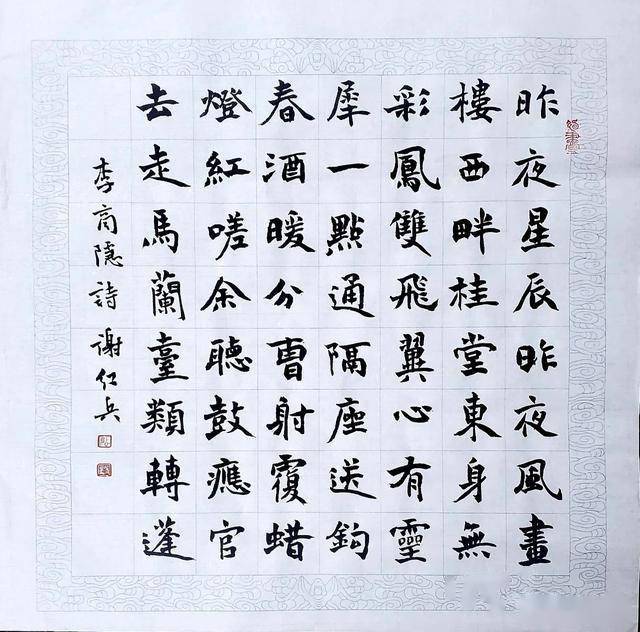 昨夜星辰昨夜風畫
樓西畔桂堂東身無
彩鳳雙飛翼心有靈
犀一點通隔座送鈎
春酒暖分曹射覆蜡
燈紅嗟余聽鼓應官
去走馬蘭臺類轉蓬
李商隱詩謝红兵